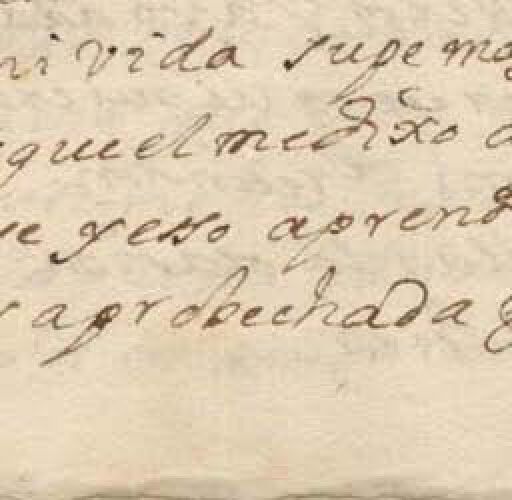 mi vida supe ma
que el me dixo a
ue y esso aprend
r aprobechada